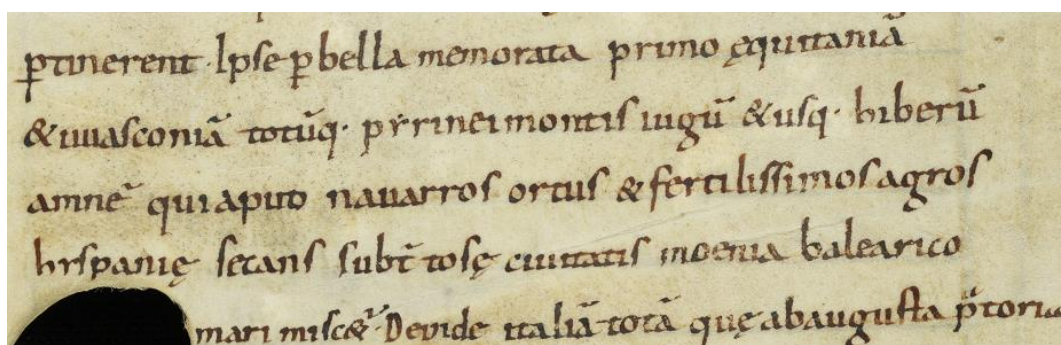 ꝑtinerent · Ipse ꝑ bella memorata primo ęquitaniā
& uuasconiā totūq· pẏrinei montis iugū & usq· hiberū
amnē qui apud nauarros ortus & fertilissimos agros
hẏspanię secans subt̄ tosę ciuitatis moenia balearico
mari misc&ur· Deinde italiā totā quę ab augusta p̄toria